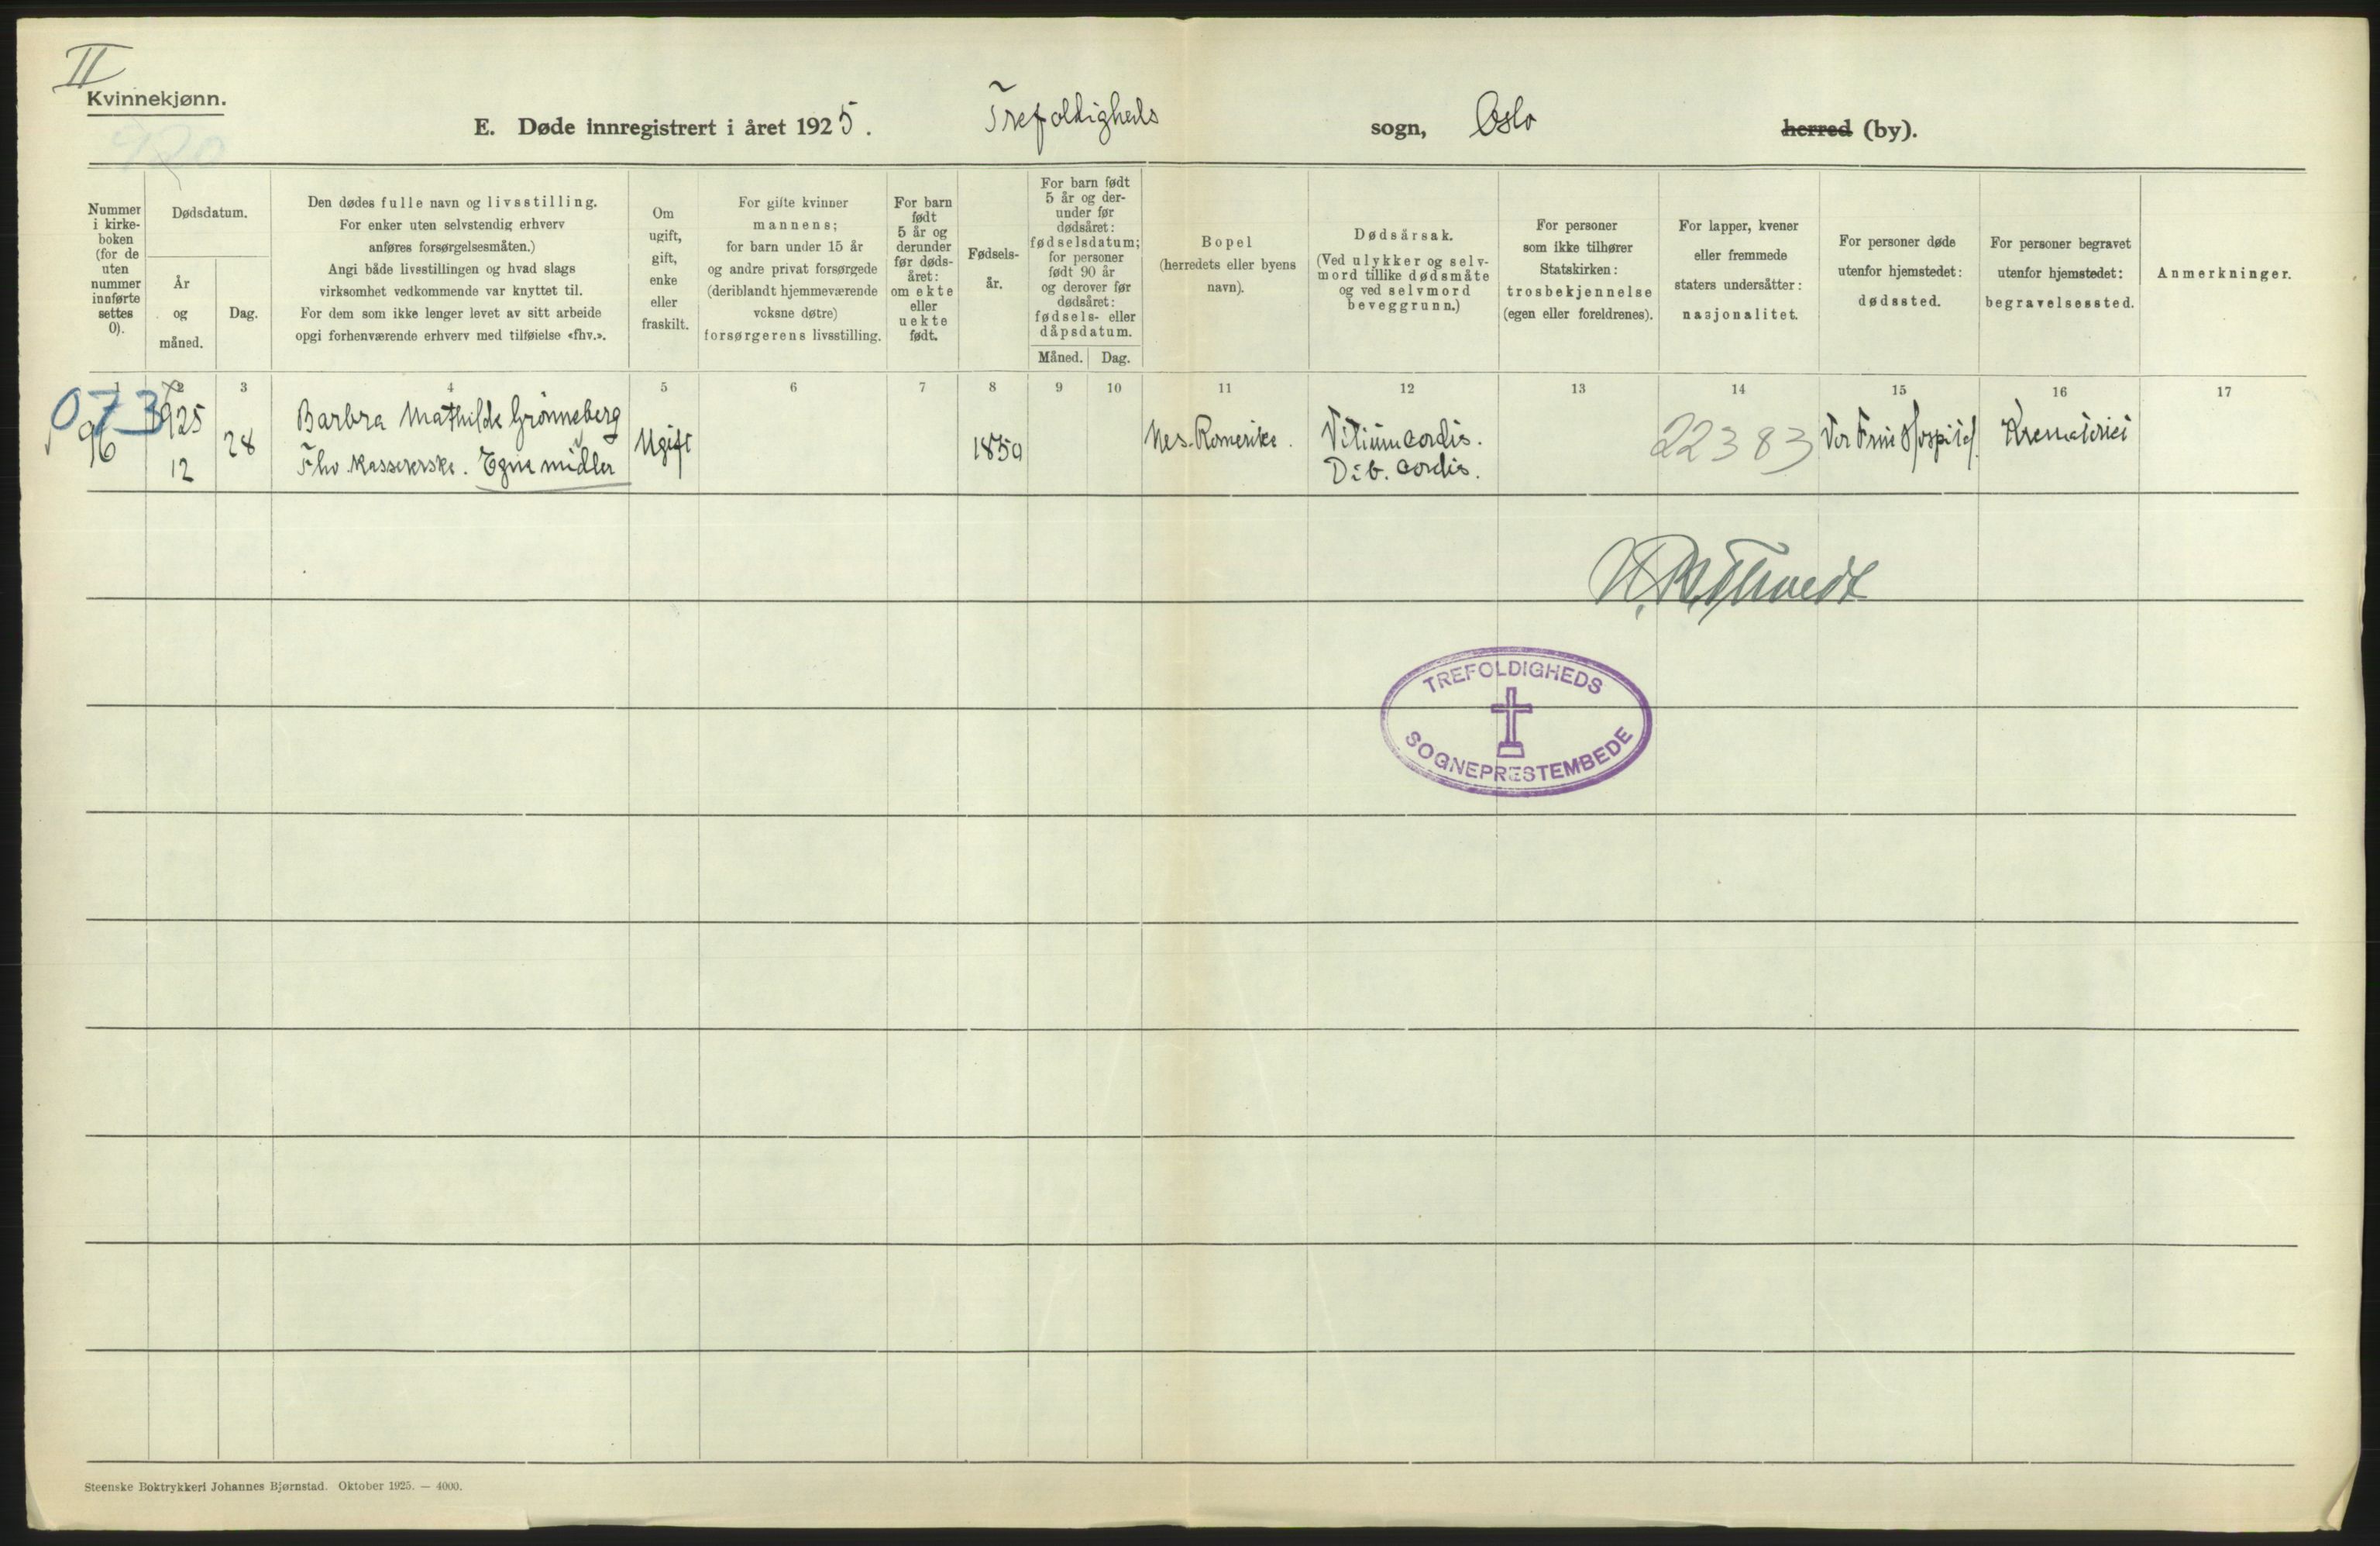 II
Kvinnekjønn.
920
E. Døde innregistrert i året 1925. Trefoldigheds sogn, Oslo herred (by).
Nummer
i kirke-
boken
(for de
uten
nummer
innførte
settes
0).
Dødsdatum.
År
og
måned.
Dag.
Den dødes fulle navn og livsstilling.
For enker uten selvstendig erhverv
anføres forsørgelsesmåten.)
Angi både livsstillingen og hvad slags
virksomhet vedkommende var knyttet til.
For dem som ikke lenger levet av sitt arbeide
opgi forhenværende erhverv med tilføielse «fhv.».
Om
ugift,
gift,
enke
eller
fraskilt.
For gifte kvinner
mannens;
for barn under 15 år
og andre privat forsørgede
(deriblandt hjemmeværende
voksne døtre)
forsørgerens livsstilling.
For barn
født
5 år og
derunder
før døds-
året:
om ekte
eller
uekte
født.
Fødsels-
år.
For barn født
5 år og der-
under før
dødsåret:
fødselsdatum;
for personer
født 90 år
og derover før
dødsåret:
fødsels- eller
dåpsdatum.
Måned. Dag.
Bopel
(herredets eller byens
navn).
Dødsårsak.
(Ved ulykker og selv-
mord tillike dødsmåte
og ved selvmord
beveggrunn.)
For personer
som ikke tilhører
Statskirken:
trosbekjennelse
(egen eller foreldrenes).
For lapper, kvener
eller fremmede
staters undersåtter:
nasjonalitet.
For personer døde
utenfor hjemstedet:
dødssted.
For personer begravet
utenfor hjemstedet:
begravelsessted.
Anmerkninger.
1 2 3 4 5 6 7 8 9 10 11 12 13 14 15 16 17
073
96
1925
12
28
Barbra Mathilde Grønneberg
Fhv. Kassererske. Egne midler
Ugift
1859
Nes. Romerike.
Vitium cordis.
Dib. cordis.
22383
Vor Frue Hospital.
Krematoriet
TREFOLDIGHEDS
SOGNEPRESTEMBEDE
Steenske Boktrykkeri Johannes Bjørnstad. Oktober 1925. — 4000.